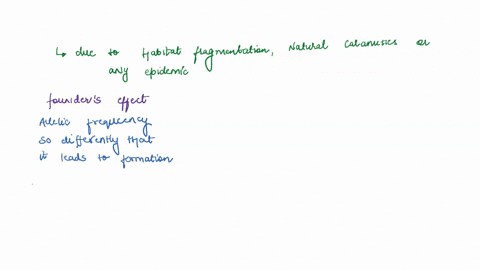 ↳ due to Habitat fragmentation, Natural Calamities or
any epidemic
founder's effect
Allelic frequency
so differently that
it leads to formation